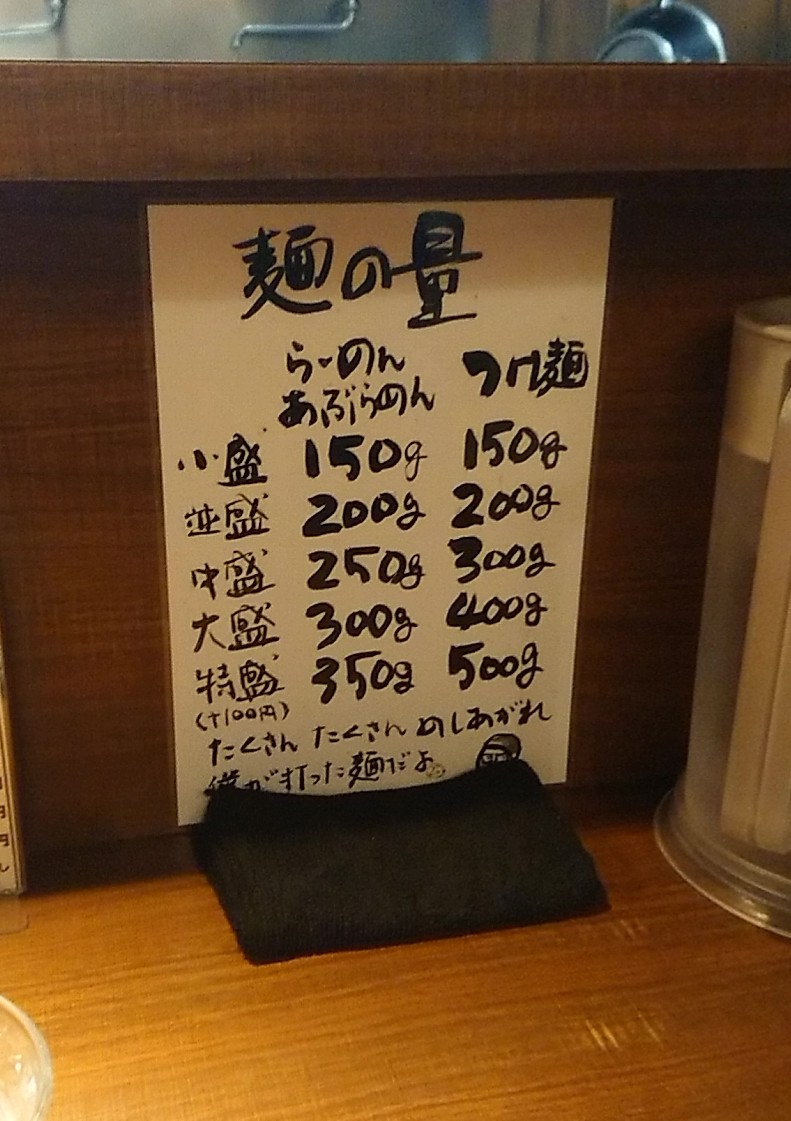 麺の量
らーめん
あぶらめん
つけ麺
小盛 150g 150g
並盛 200g 200g
中盛 250g 300g
大盛 300g 400g
特盛 350g 500g
(+100円)
たくさん たくさん めしあがれ
が打った麺だよ
円
円
し